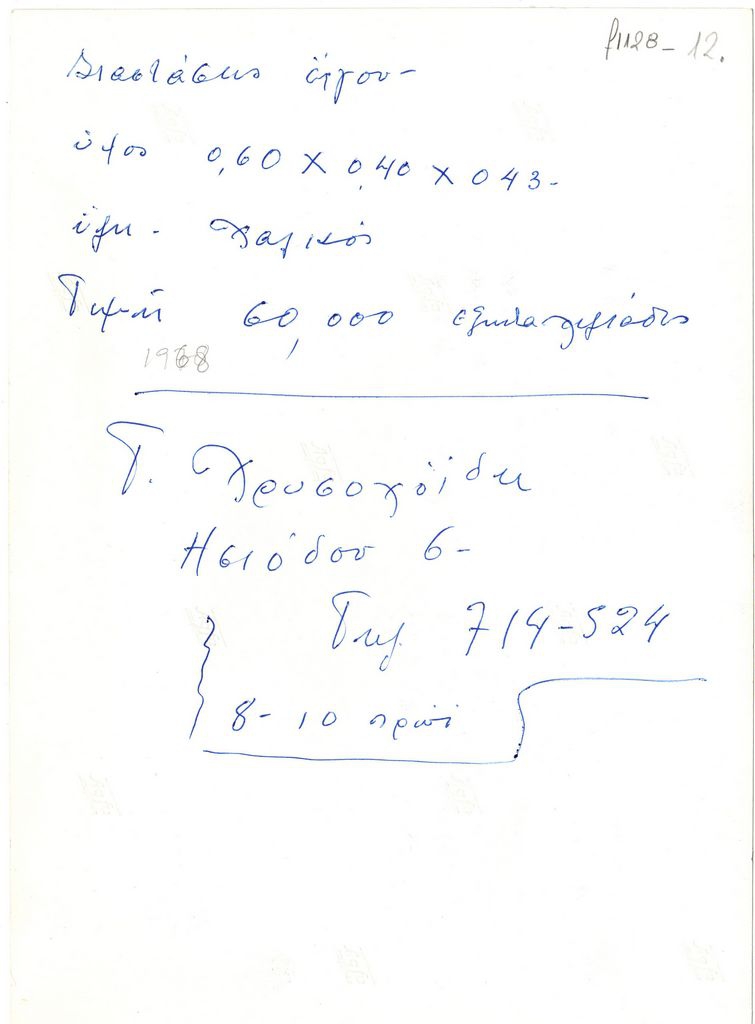 f1128-12.
Διαστάσεις έργου-
ύψος 0,60 X 0,40 X 0 43-
ύλη - Χαλκός
Τιμή 60,000 εξήντα χιλιάδες
1968
Γ. Χρυσοχόϊδη
Ησιόδου 6-
Τηλ. 714-524
8-10 πρωί